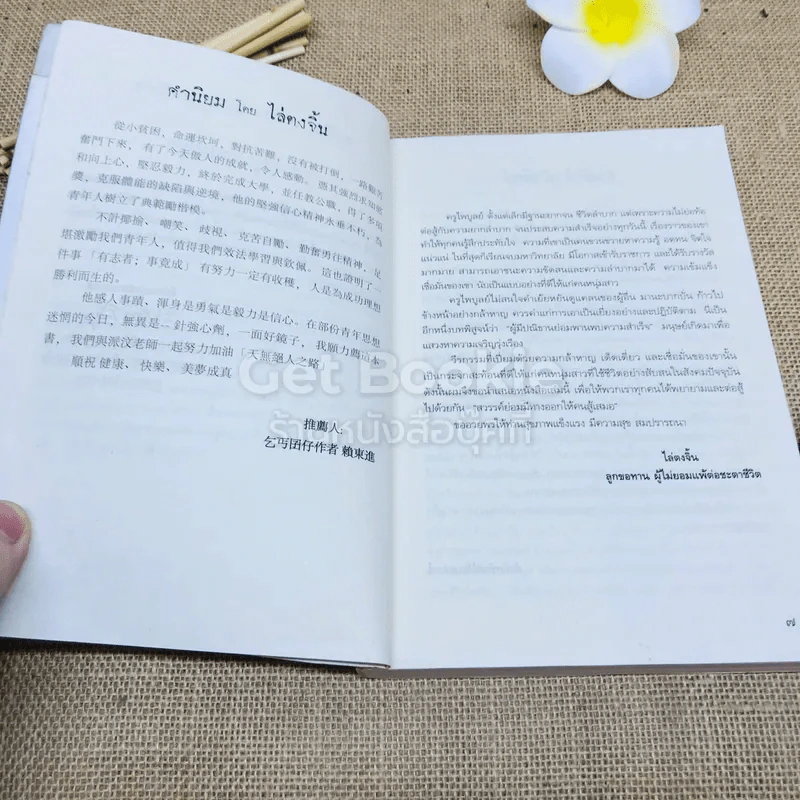 คำนิยม โดย ไล่ตงจิ้น
從小貧困、命運坎坷，對抗苦難，沒有被打倒，一路艱苦
奮鬥下來，有了今天做人的成就，令人感動。憑其強烈求知慾
和向上心，堅忍毅力，終於完成大學，並任教公職，得了多項
獎，克服體能的缺陷與逆境，他的堅強信心精神永垂不朽，為
青年人樹立了典範勵楷模。
不計揶揄、嘲笑、歧視、克苦自勵、勤奮勇往精神，足
堪激勵我們青年人，值得我們效法學習與欽佩。這也證明了一
件事「有志者；事竟成」有努力一定有收穫，人是為成功理想
勝利而生的。
他感人事蹟、渾身是勇氣是毅力是信心。在部份青年思想
迷惘的今日，無異是一針強心劑，一面好鏡子，我願力薦這本
書，我們與派汶老師一起努力加油「天無絕人之路」
順祝 健康、快樂、美夢成真
推薦人：
乞丐囝仔作者 賴東進
ครูไพบูลย์ ตั้งแต่เล็กมีฐานะยากจน ชีวิตลำบาก แต่เพราะความไม่ย่อท้อ
ต่อสู้กับความยากลำบาก จนประสบความสำเร็จอย่างทุกวันนี้ เรื่องราวของเขา
ทำให้ทุกคนรู้สึกประทับใจ ความที่เขาเป็นคนขวนขวายหาความรู้ อดทน จิตใจ
แน่วแน่ ในที่สุดก็เรียนจบมหาวิทยาลัย มีโอกาสเข้ารับราชการ และได้รับรางวัล
มากมาย สามารถเอาชนะความขัดสนและความลำบากมาได้ ความเข้มแข็ง
เชื่อมั่นของเขา นับเป็นแบบอย่างที่ดีให้แก่คนหนุ่มสาว
ครูไพบูลย์ไม่สนใจคำเย้ยหยันดูแคลนของผู้อื่น มานะบากบั่น ก้าวไป
ข้างหน้าอย่างกล้าหาญ ควรค่าแก่การเอาเป็นเยี่ยงอย่างและปฏิบัติตาม นี่เป็น
อีกหนึ่งบทพิสูจน์ว่า "ผู้มีปณิธานย่อมพานพบความสำเร็จ" มนุษย์เกิดมาเพื่อ
แสวงหาความเจริญรุ่งเรือง
วีรกรรมที่เปี่ยมด้วยความกล้าหาญ เด็ดเดี่ยว และเชื่อมั่นของเขานั้น
เป็นกระจกสะท้อนที่ดีให้แก่คนหนุ่มสาวที่ใช้ชีวิตอย่างสับสนในสังคมปัจจุบัน
ดังนั้นผมจึงขอนำเสนอหนังสือเล่มนี้ เพื่อให้พวกเราทุกคนได้พยายามและต่อสู้
ไปด้วยกัน "สวรรค์ย่อมมีทางออกให้คนสู้เสมอ"
ขออวยพรให้ท่านสุขภาพแข็งแรง มีความสุข สมปรารถนา
ไล่ตงจิ้น
ลูกขอทาน ผู้ไม่ยอมแพ้ต่อชะตาชีวิต
๗
Get Bookie
ร้านหนังสือบุ๊คกี้